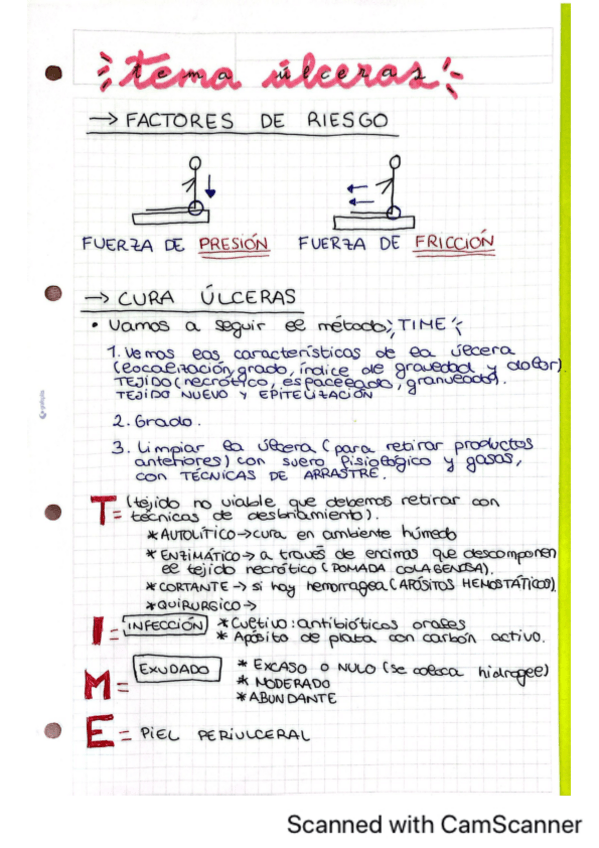 tema úlceras
→ FACTORES DE RIESGO
FUERZA DE PRESIÓN FUERZA DE FRICCIÓN
→ CURA ÚLCERAS
• Vamos a seguir el método TIME
1. Vemos las características de la úlcera
(localización, grado, índice de gravedad y dolor).
TEJIDO (necrótico, esfacelado, granulado).
TEJIDO NUEVO Y EPITELIZACIÓN
2. Grado.
3. Limpiar la úlcera (para retirar productos
anteriores) con suero fisiológico y gasas,
con TÉCNICAS DE ARRASTRE.
T= (tejido no viable que debemos retirar con
técnicas de desbridamiento).
* AUTOLÍTICO → cura en ambiente húmedo
* ENZIMÁTICO → a través de encimas que descomponen
el tejido necrótico (POMADA COLAGENOSA).
* CORTANTE → si hay hemorragea (APÓSITOS HEMOSTÁTICOS)
* QUIRURGICO →
I = INFECCIÓN * Cultivo: antibióticos orales
* Apósito de plata con carbón activo.
M = EXUDADO * ESCASO O NULO (se coloca hidrogel)
* MODERADO
* ABUNDANTE
E = PIEL PERIULCERAL
Scanned with CamScanner